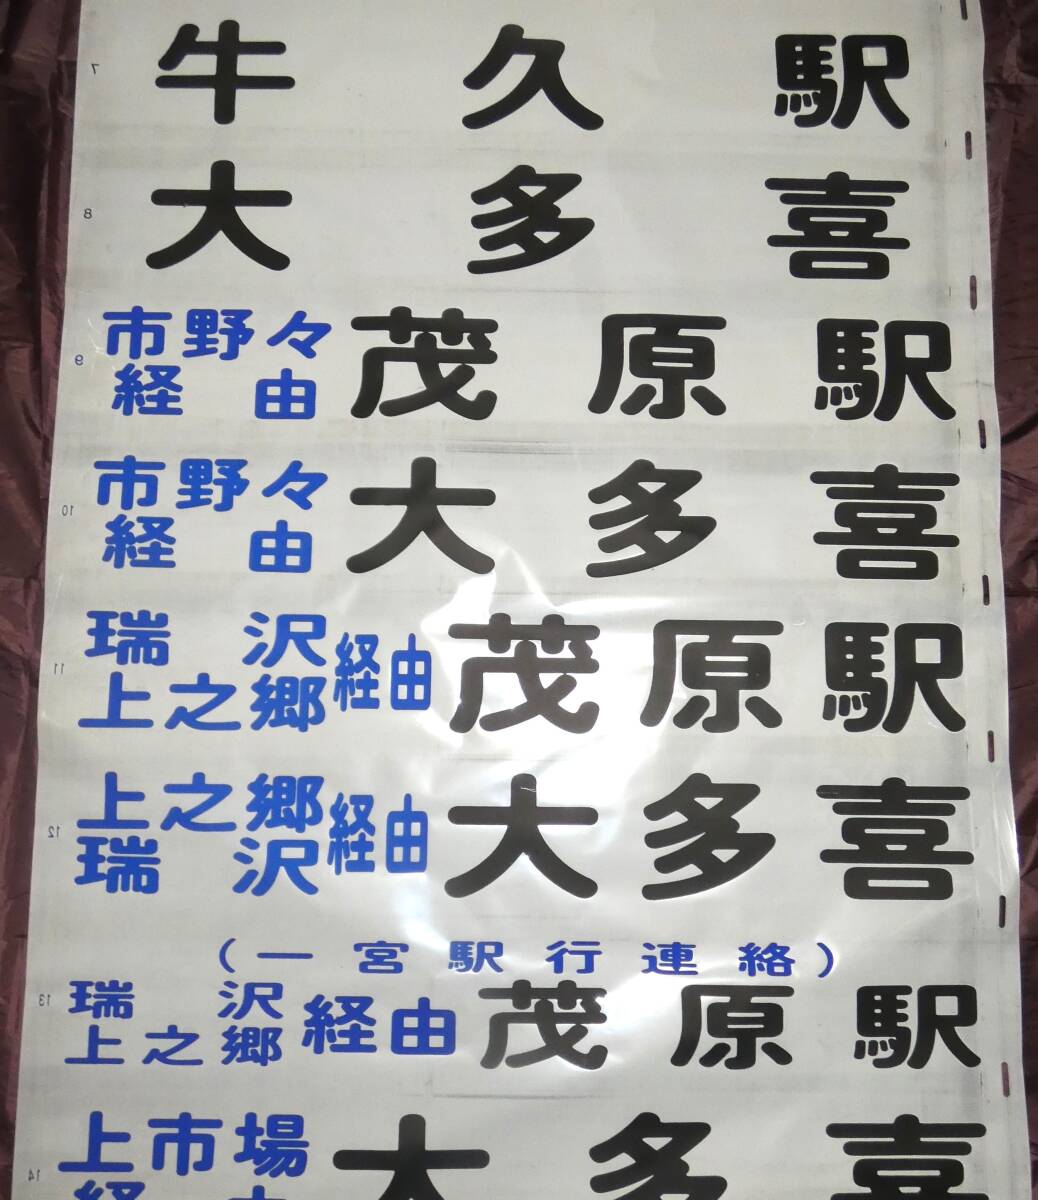 7 牛久駅
8 大多喜
9 市野々経由 茂原駅
10 市野々経由 大多喜
11 瑞沢上之郷経由 茂原駅
12 上之郷瑞沢経由 大多喜
(一宮駅行連絡)
13 瑞沢上之郷経由 茂原駅
14 上市場経由 大多喜